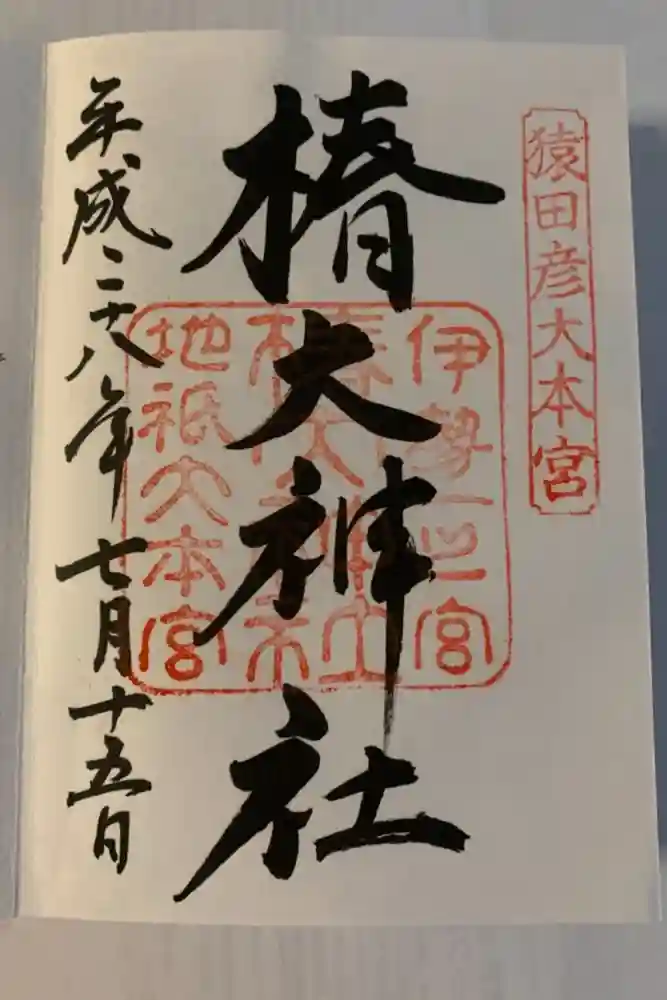 猿田彦大本宮
椿大神社
伊勢一之宮
椿大神社
地祇大本宮
平成二十八年七月十五日